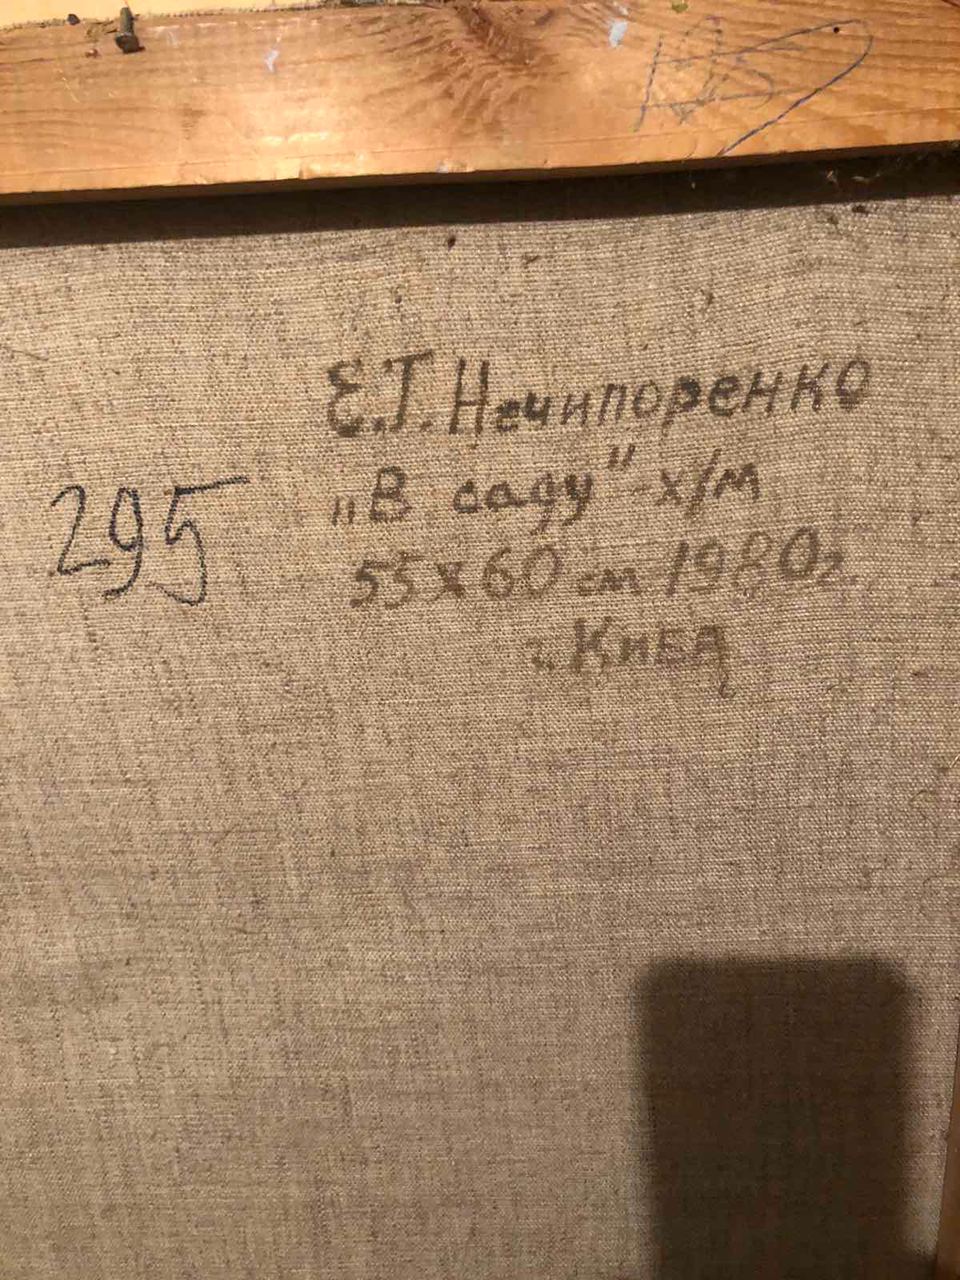 Е.Г. Нечипоренко
295
„В саду" - х/м
55х60 см 1980г.
г. Киев